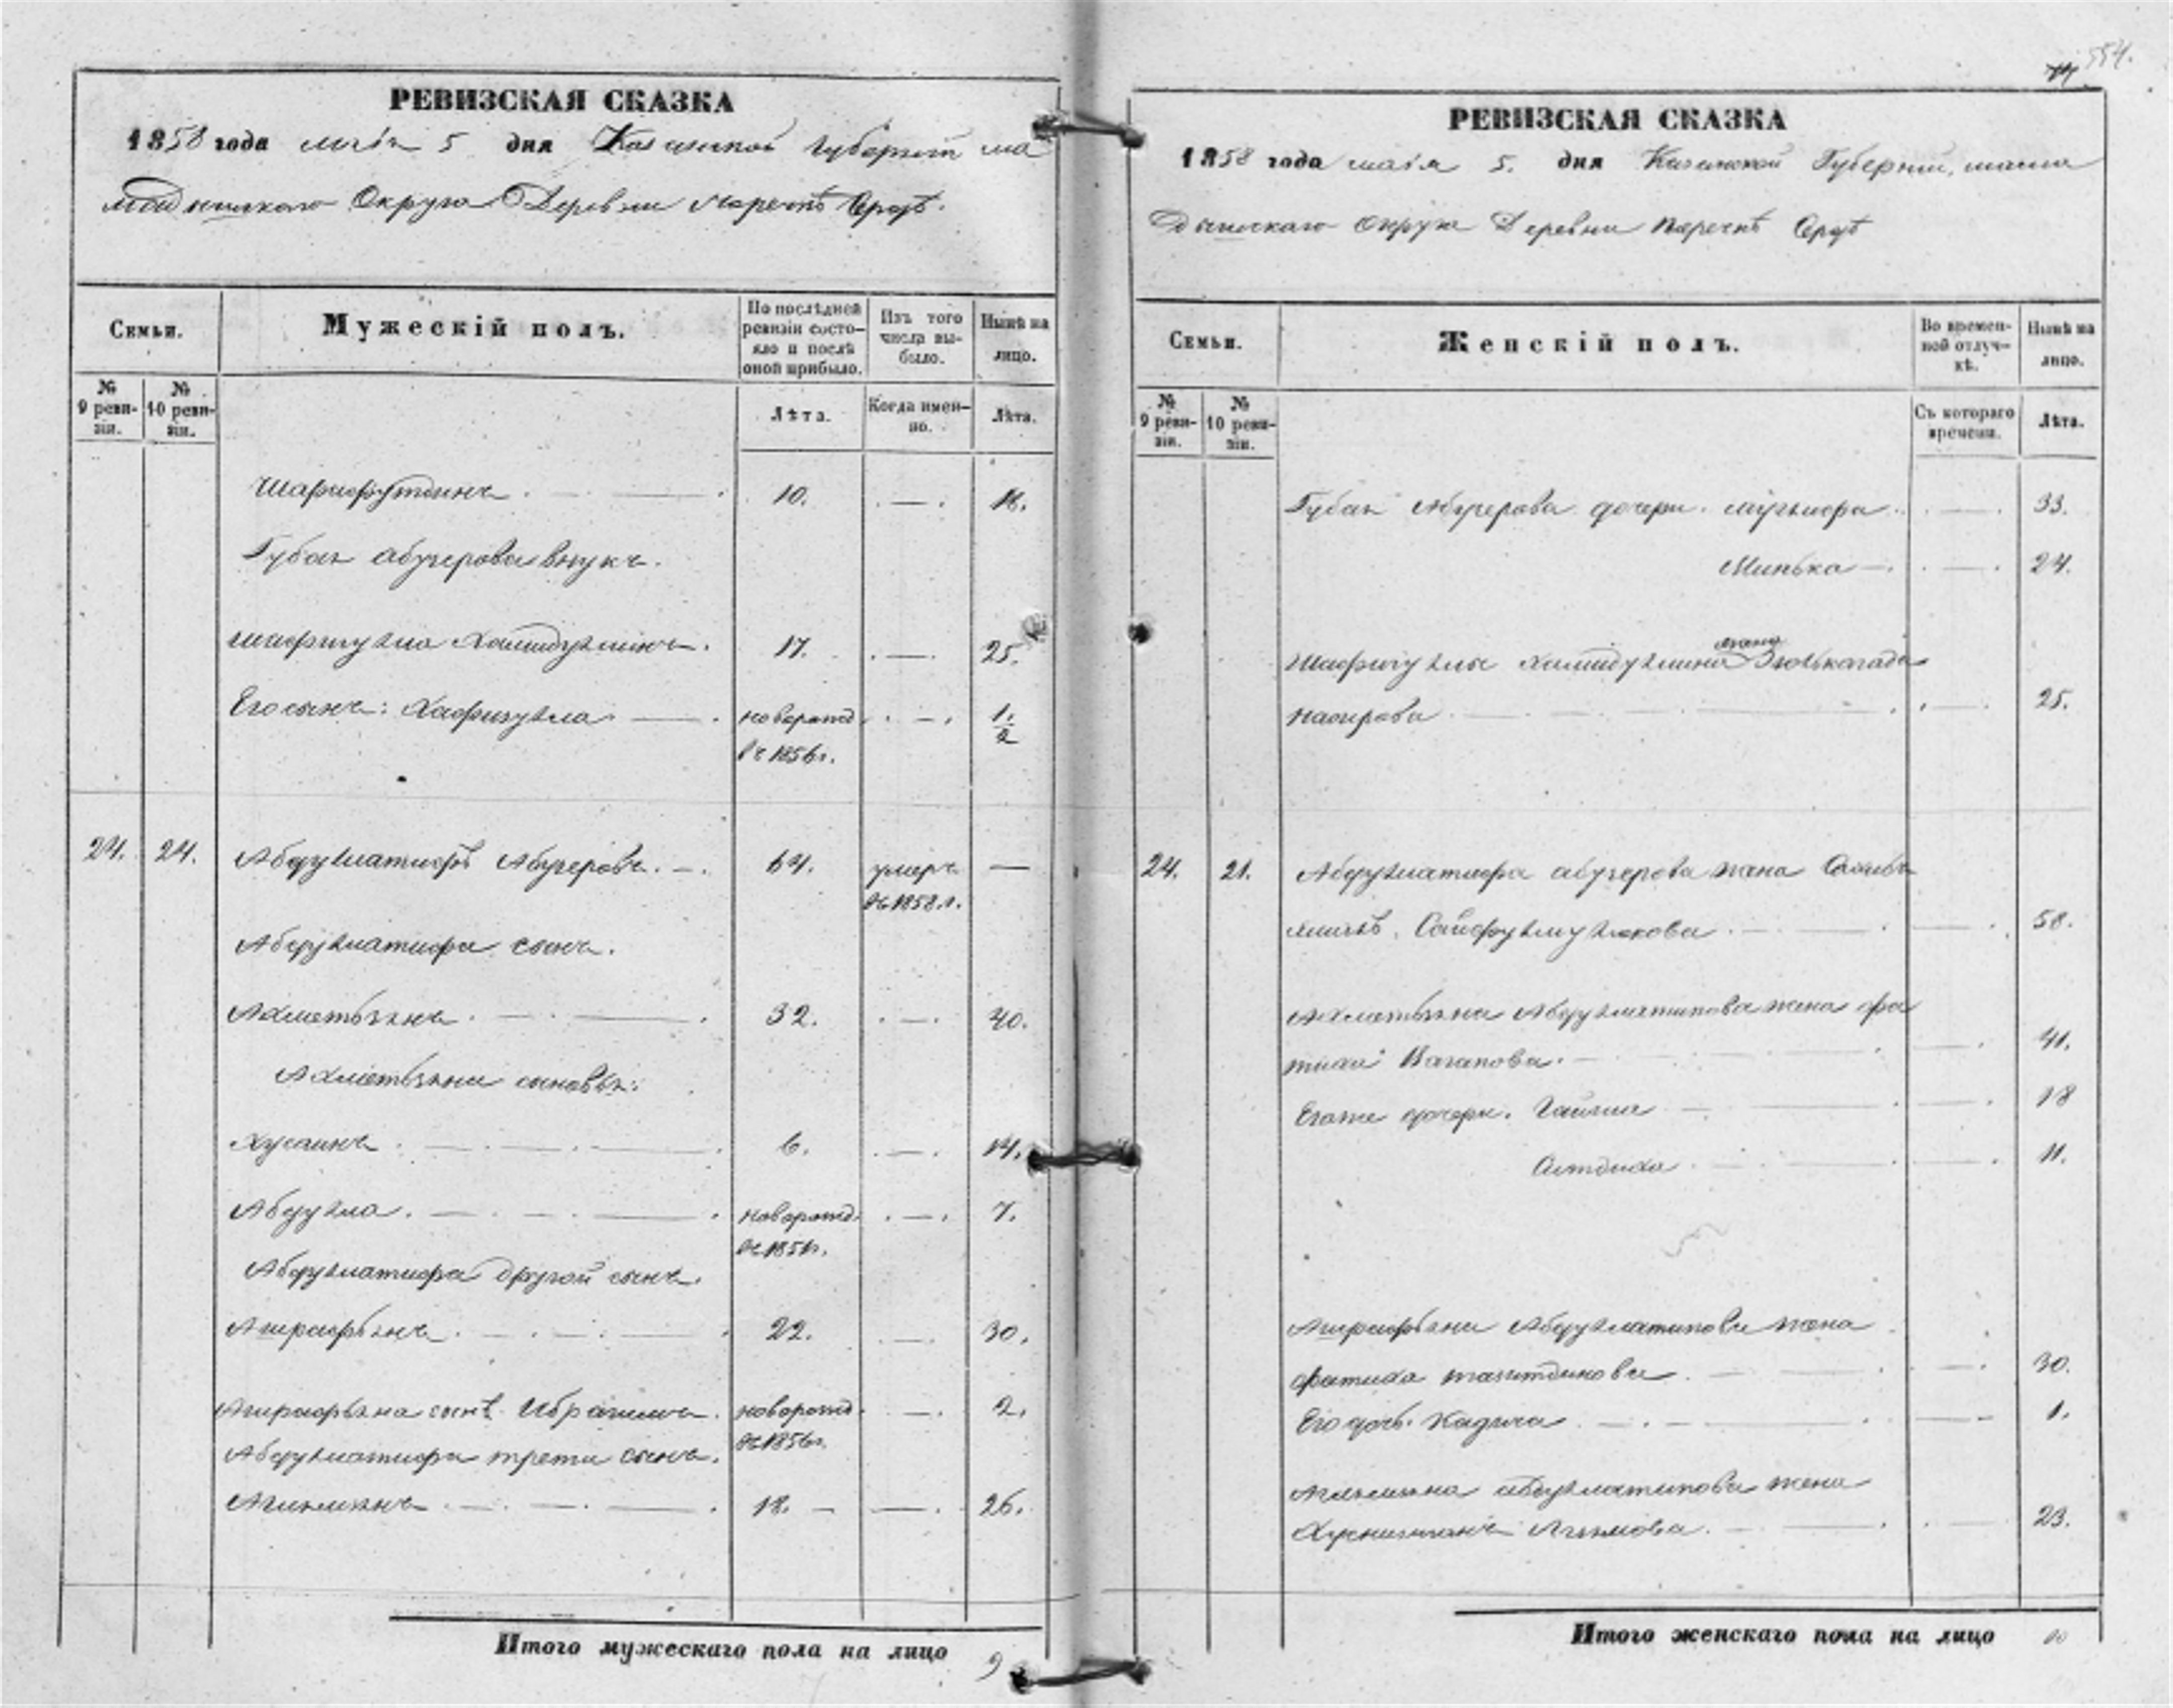 554.
РЕВИЗСКАЯ СКАЗКА
1858 года маія 5 дня Казанской Губерніи ма
мадышскаго Округа Деревни
Семьи.
Мужескій полъ.
По послѣдней ревизіи состо-
яло и послѣ оной прибыло.
Изъ того числа вы-
было.
Нынѣ на лицо.
№ 9 реви-
зіи.
№ 10 реви-
зіи.
Лѣта.
Когда имен-
но.
Лѣта.
Шарафутдинъ 10. 18.
Губая абузерова внукъ.
Шафигулла Хамидуллинъ. 17. 25.
Его сынъ: Хафизулла новорожд. 1/2
въ 1856 г.
24. 24. Абдуллатифъ Абузеровъ. 64. умеръ —
въ 1858 г.
Абдуллатифа сынъ.
Ахметьзянъ 32. 40.
Ахметьзяна сыновья:
Хусаинъ 6. 14.
Абдулла. новорожд. 7.
въ 1851 г.
Абдуллатифа другой сынъ.
Ашрафзянъ 22. 30.
Ашрафзяна сынъ Ибрагимъ. новорожд. 2.
въ 1856 г.
Абдуллатифа трети сынъ.
18. 26.
Итого мужескаго пола на лицо 9
РЕВИЗСКАЯ СКАЗКА
1858 года маія 5. дня Казанской Губерніи, мама
дышскаго Округа Деревни
Семьи.
Женскій полъ.
Во времен-
ной отлуч-
кѣ.
Нынѣ на лицо.
№ 9 реви-
зіи.
№ 10 реви-
зіи.
Съ котораго времени.
Лѣта.
Губая Абузерова дочери. 33.
Минька 24.
Шафигуллы Хамидуллина жена
Насырова 25.
24. 21. Абдуллатифа абузерова жена
58.
Ахметьзяна Абдуллатипова жена фа
тиха Вагапова. 41.
Егоже дочери. 18
11.
Ашрафзяна Абдуллатипова жена
фатиха 30.
Его дочь. Кадича 1.
абдуллатипова жена
23.
Итого женскаго пола на лицо 10